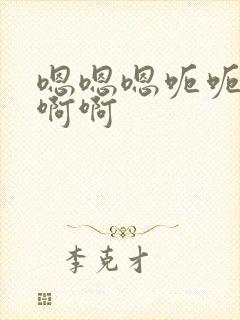 嗯嗯嗯呃呃
啊啊
李克才